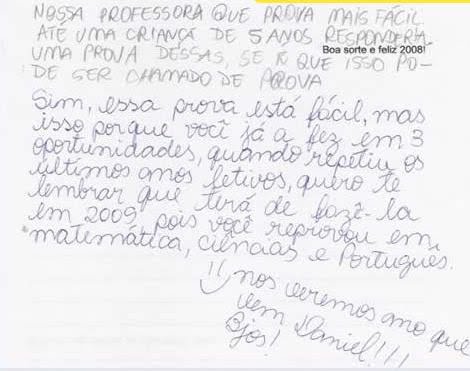 NOSSA PROFESSORA QUE PROVA MAIS FÁCIL.
ATE UMA CRIANÇA DE 5 ANOS RESPONDERIA
Boa sorte e feliz 2008!
UMA PROVA DESSAS, SE É QUE ISSO PO-
DE SER CHAMADO DE PROVA
Sim, essa prova está fácil, mas
isso porque você já a fez em 3
oportunidades, quando repetiu os
últimos anos letivos, quero te
lembrar que terá de fazê-la
em 2009 pois você reprovou em
matemática, ciências e Português.
!! nos veremos ano que
vem Daniel!!!!
Bjos!